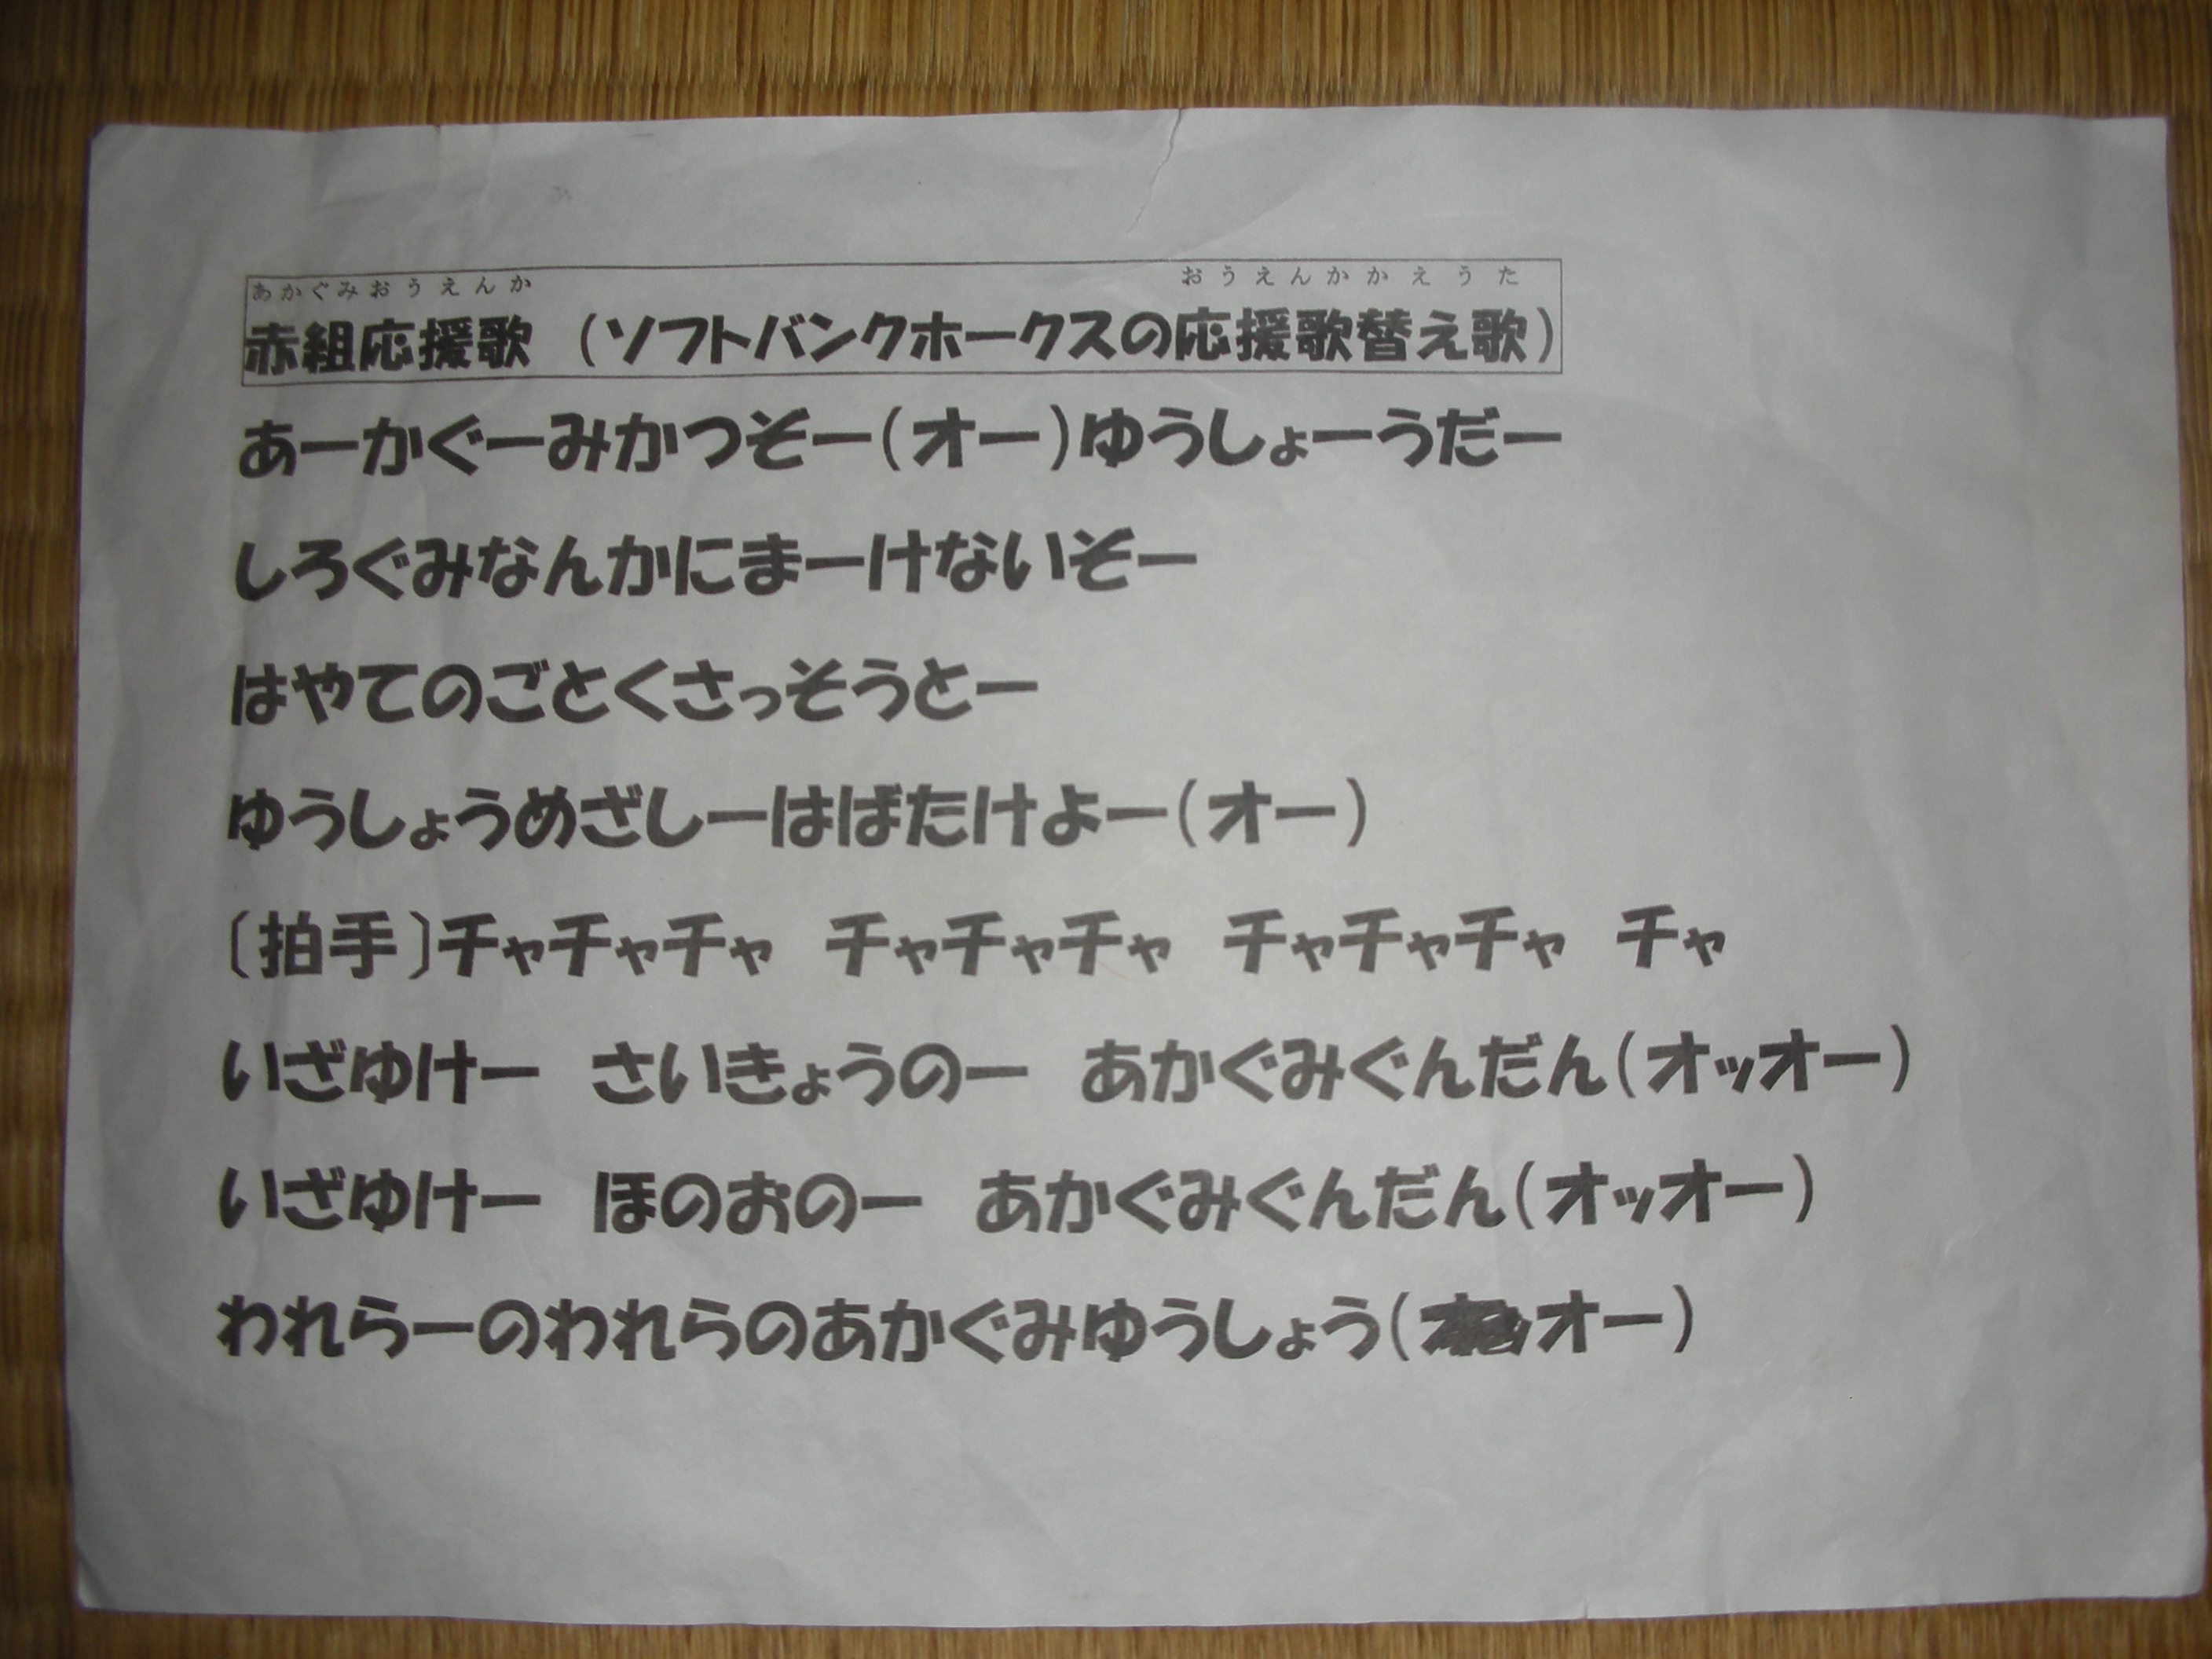 あかぐみおうえんか おうえんかかえうた
赤組応援歌 （ソフトバンクホークスの応援歌替え歌）
あーかぐーみかつぞー（オー）ゆうしょーうだー
しろぐみなんかにまーけないぞー
はやてのごとくさっそうとー
ゆうしょうめざしーはばたけよー（オー）
〔拍手〕チャチャチャ チャチャチャ チャチャチャ チャ
いざゆけー さいきょうのー あかぐみぐんだん（オッオー）
いざゆけー ほのおのー あかぐみぐんだん（オッオー）
われらーのわれらのあかぐみゆうしょう（オー）